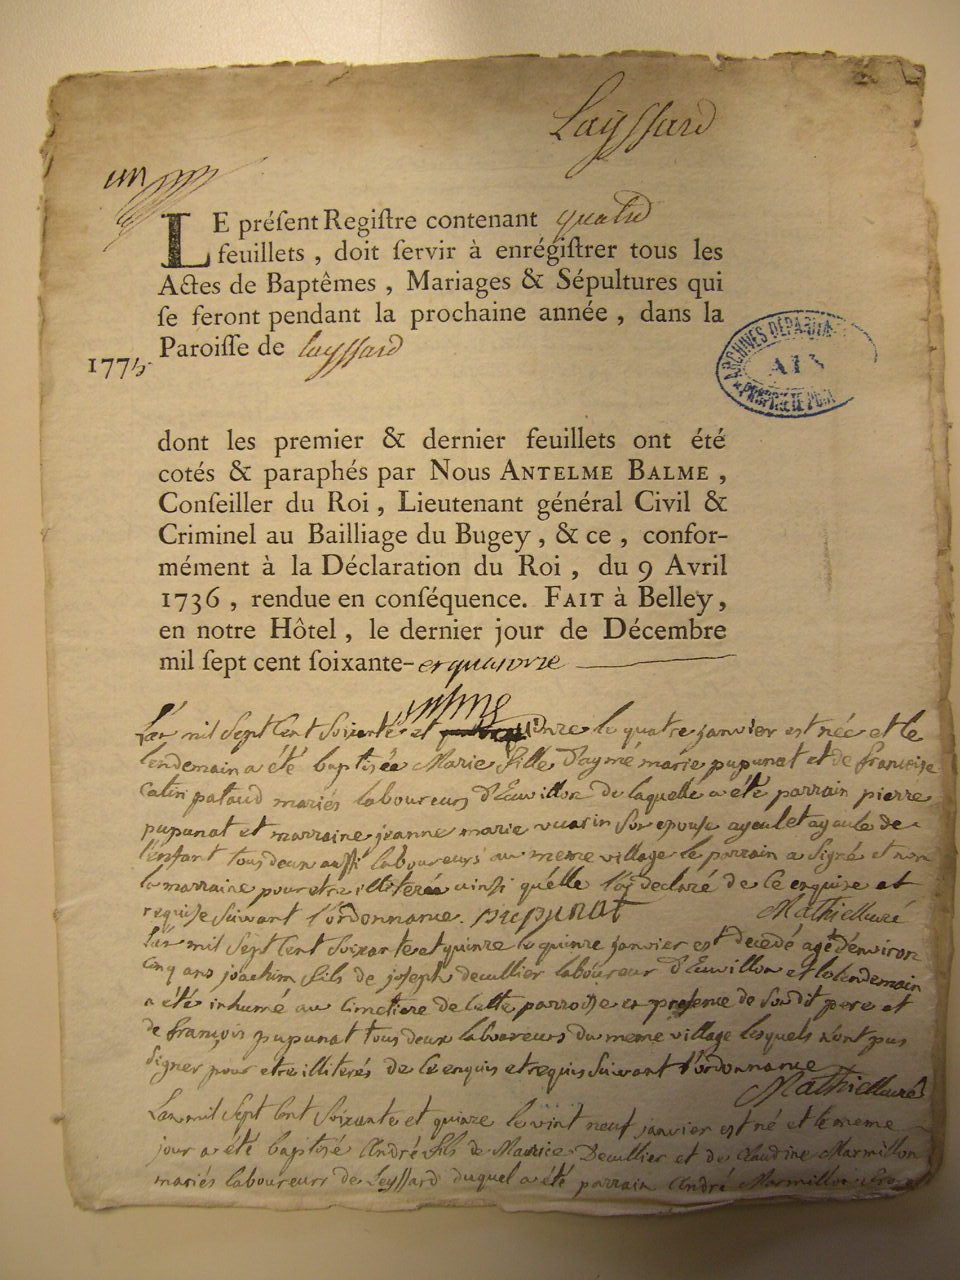 Layssard
un
LE préſent Regiſtre contenant quatre
feuillets, doit ſervir à enrégiſtrer tous les
Actes de Baptêmes, Mariages & Sépultures qui
ſe feront pendant la prochaine année, dans la
Paroiſſe de layssard
1775
ARCHIVES DÉPARTEM
AIN
dont les premier & dernier feuillets ont été
cotés & paraphés par Nous ANTELME BALME,
Conſeiller du Roi, Lieutenant général Civil &
Criminel au Bailliage du Bugey, & ce, confor-
mément à la Déclaration du Roi, du 9 Avril
1736, rendue en conſéquence. FAIT à Belley,
en notre Hôtel, le dernier jour de Décembre
mil ſept cent ſoixante-et quatorze
L'an mil sept cent soixante et quinze le quatre janvier est née et le
lendemain a été baptisée Marie fille d'aymé marie pupunat et de francoise
Catin pataud mariés laboureurs d'Euvillon de laquelle a été parrain pierre
pupunat et marraine jeanne marie vuarin son epouse ayeul et ayeule de
l'enfant tous deux aussi laboureurs au meme village le parrain a signé et non
la marraine pour etre illiterée ainsi qu'elle l'a declaré de ce enquise et
requise suivant l'ordonnance. pupunat Mathieu curé
L'an mil sept cent soixante et quinze le quinze janvier est decedé agé d'environ
cinq ans joachim fils de joseph decullier laboureur d'Euvillon et le lendemain
a été inhumé au cimetiere de cette parroisse en presence de son dit pere et
de françois pupunat tous deux laboureurs du meme village lesquels n'ont pas
signer pour etre illiterés de ce enquis et requis suivant l'ordonnance
Mathieu curé
L'an mil sept cent soixante et quinze le vint neuf janvier est né et le meme
jour a été baptisé André fils de Maurice Decullier et de Claudine Marmillon
mariés laboureurs de Leyssard duquel a été parrain André Marmillon